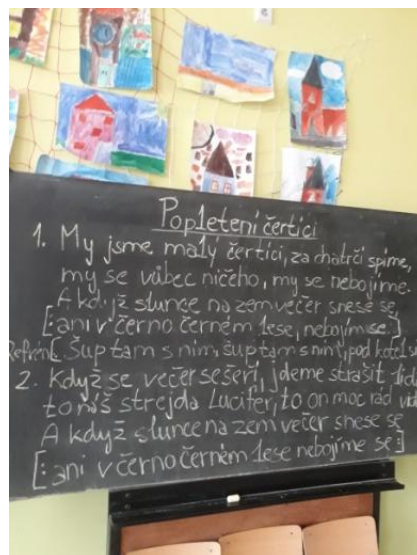 Popletení čertíci
1. My jsme malý čertíci, za chatrčí spíme,
my se vůbec ničeho, my se nebojíme.
A když slunce na zem večer snese se
[: ani v černo černém lese, nebojíme se :]
Refrén [: Šup tam s ním, šup tam s ním, pod kotel
2. Když se večer sešeří, jdeme strašit
to náš strejda Lucifer, to on moc rád
A když slunce na zem večer snese se
[: ani v černo černém lese nebojíme se :]